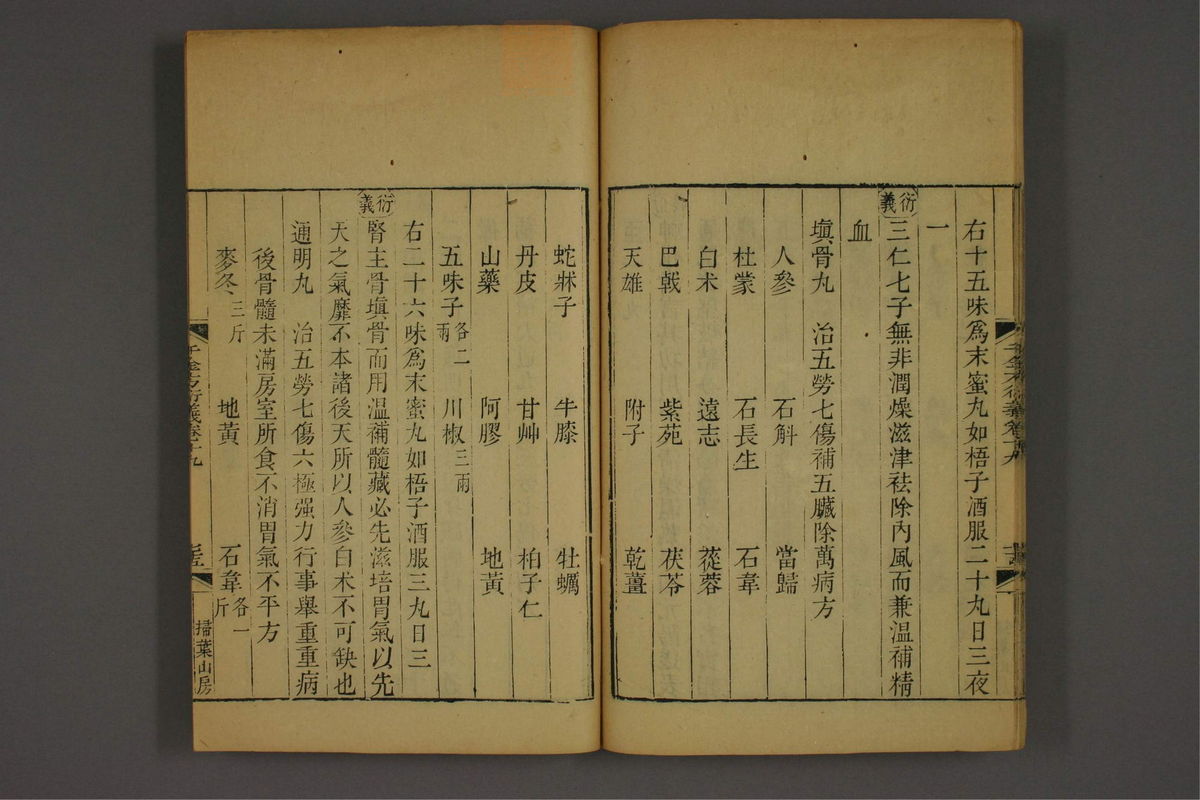 右十五味爲末蜜丸如梧子酒服二十九日三夜
一
衍義
三仁七子無非潤燥滋津祛除內風而兼溫補精
血
塡骨丸　治五勞七傷補五臟除萬病方
人參　石斛　當歸
杜蒙　石長生　石韋
白朮　遠志　蓯蓉
巴戟　紫菀　茯苓
天雄　附子　乾薑
蛇牀子　牛膝　牡蠣
丹皮　甘艸　柏子仁
山藥　阿膠　地黃
五味子各二兩　川椒三兩
右二十六味爲末蜜丸如梧子酒服三丸日三
衍義
腎主骨塡骨而用溫補髓藏必先滋培胃氣以先
天之氣靡不本諸後天所以人參白朮不可缺也
通明丸　治五勞七傷六極强力行事舉重重病
後骨髓未滿房室所食不消胃氣不平方
麥冬三斤　地黃　石韋各一斤
千金方衍義卷十九
掃葉山房